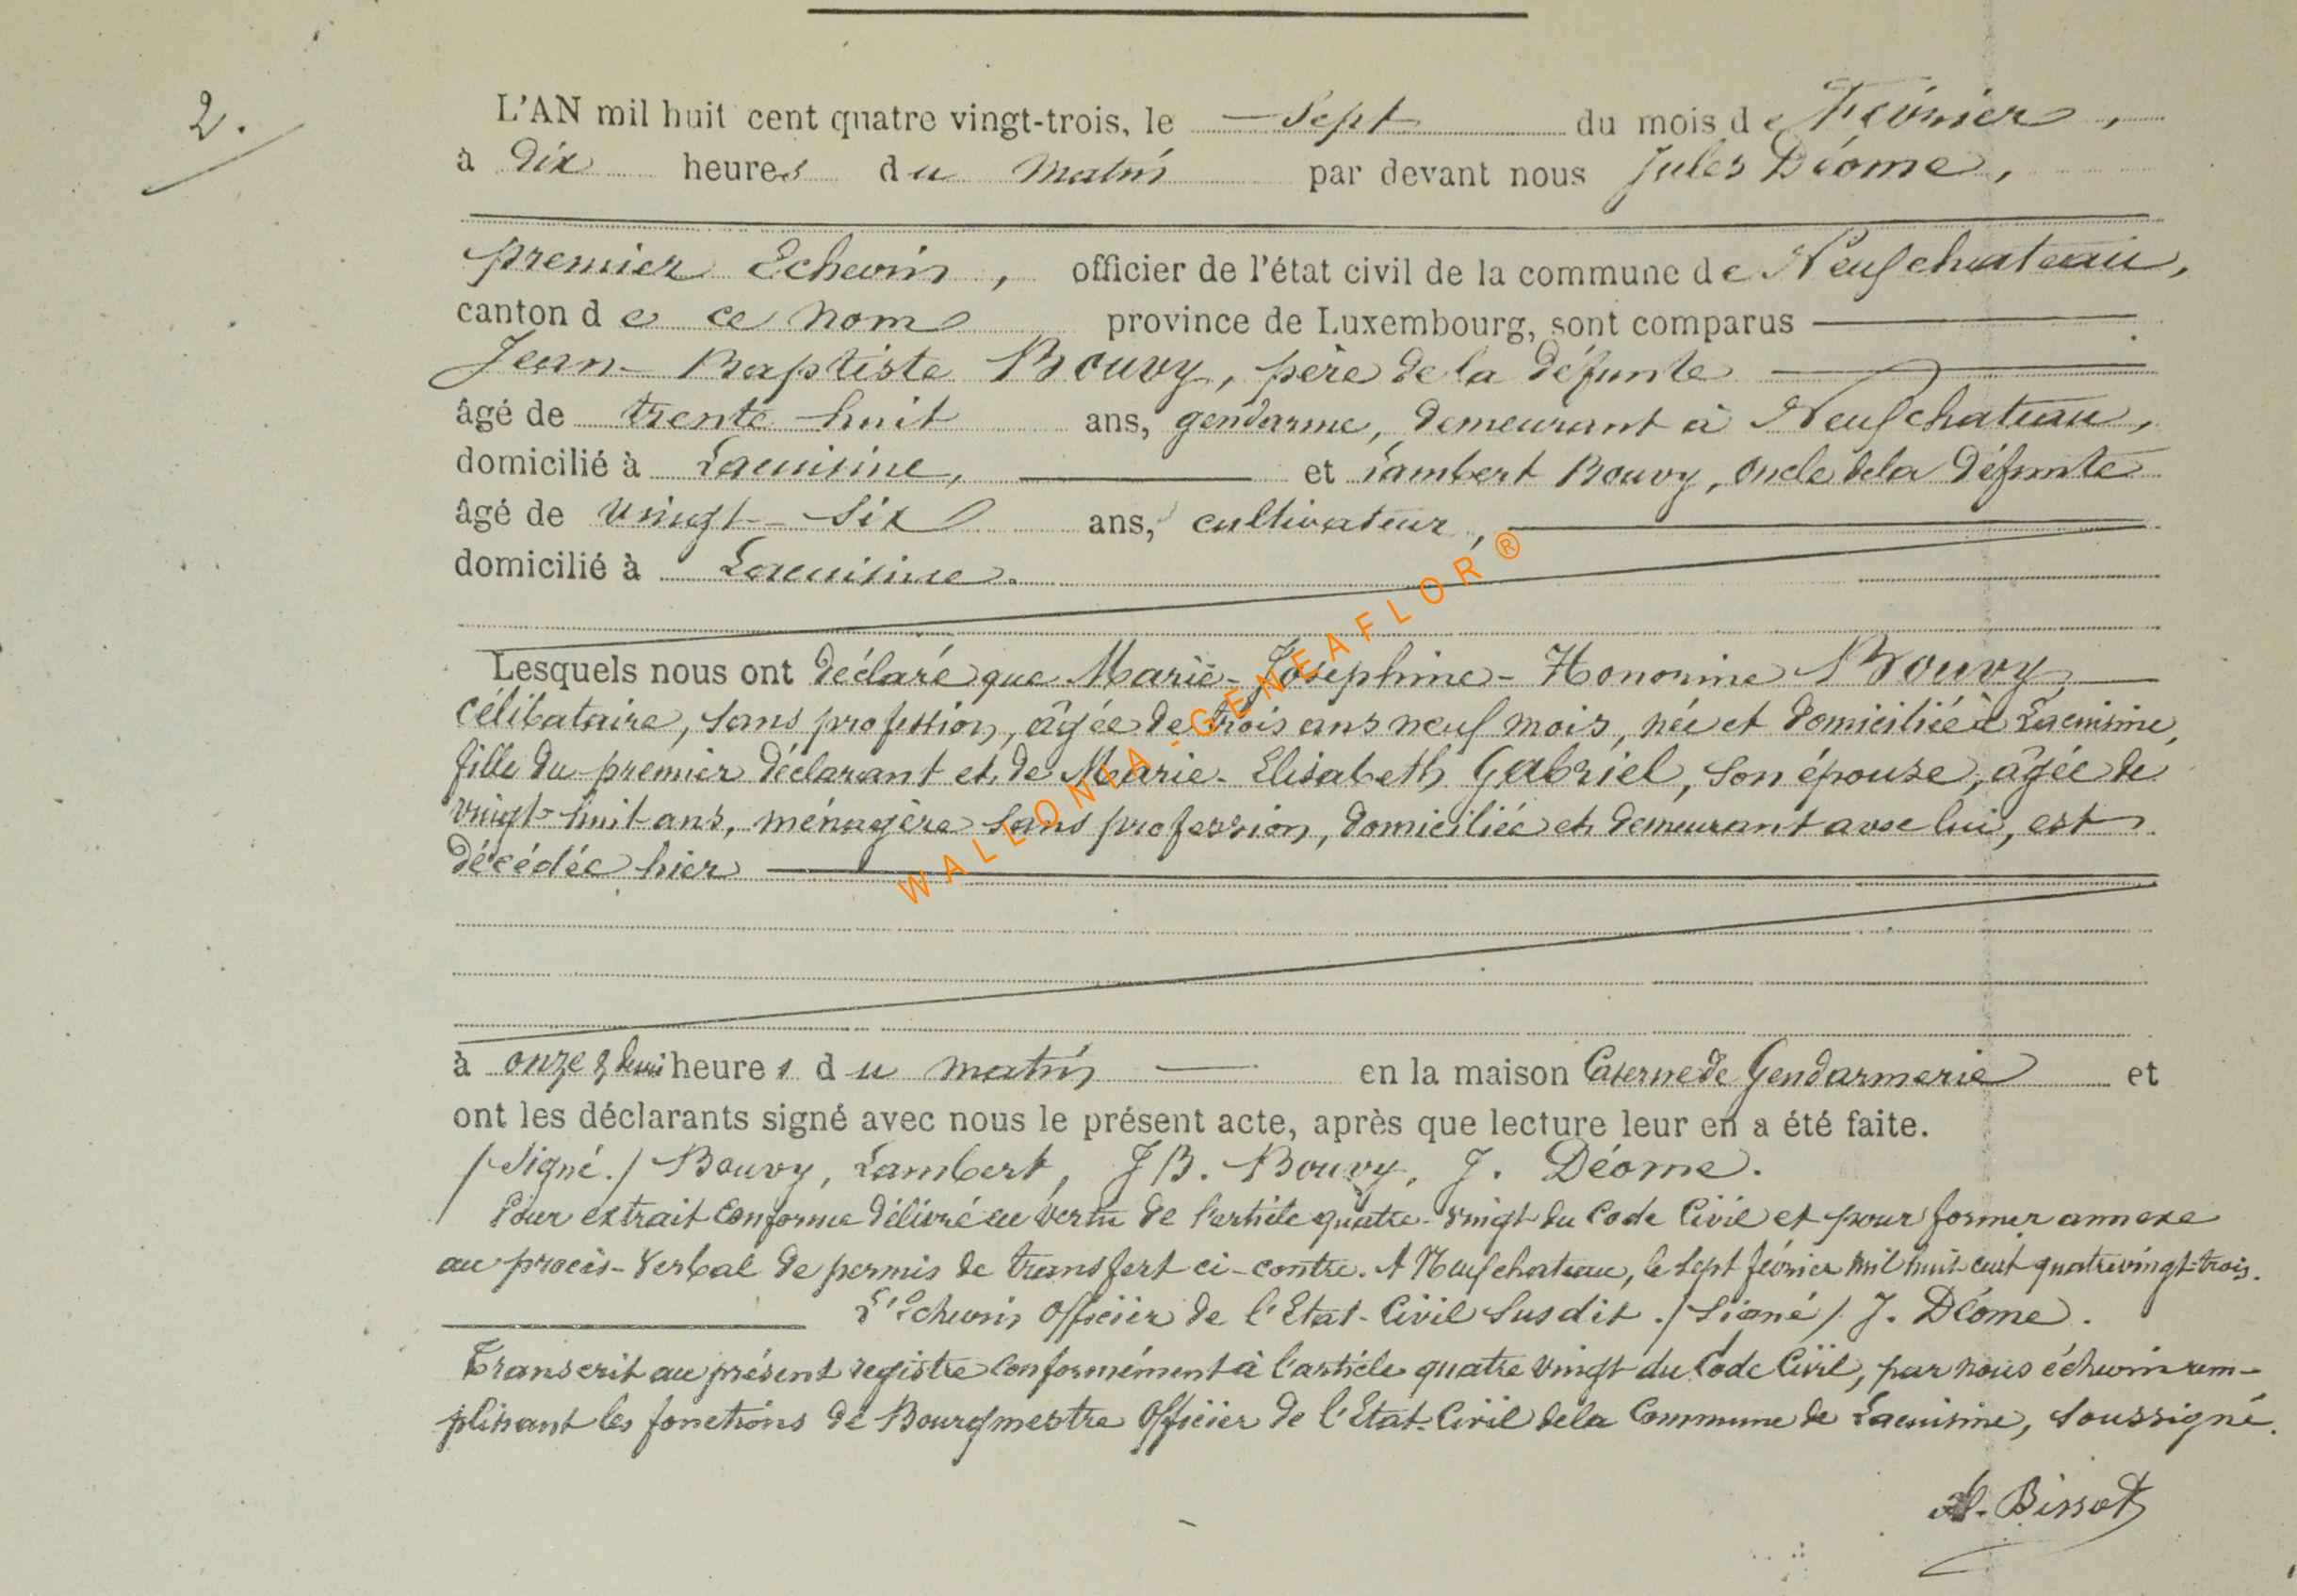 2.
L'AN mil huit cent quatre vingt-trois, le sept du mois de Février,
à dix heures du matin par devant nous Jules Déome,
premier Echevin, officier de l'état civil de la commune de Neufchateau,
canton de ce nom province de Luxembourg, sont comparus
Jean-Baptiste Bouvy, père de la défunte
âgé de trente-huit ans, gendarme, demeurant à Neufchateau,
domicilié à Lacuisine, et Lambert Bouvy, oncle de la défunte
âgé de vingt-six ans, cultivateur,
domicilié à Lacuisine.
Lesquels nous ont déclaré que Marie-Joséphine-Honorine Bouvy,
célibataire, sans profession, âgée de trois ans neuf mois, née et domiciliée à Lacuisine,
fille du premier déclarant et de Marie-Elisabeth Gabriel, son épouse, âgée de
vingt-huit ans, ménagère sans profession, domiciliée et demeurant avec lui, est
décédée hier
à onze heures du matin en la maison Caserne de Gendarmerie et
ont les déclarants signé avec nous le présent acte, après que lecture leur en a été faite.
/Signé./ Bouvy, Lambert, J B. Bouvy, J. Déome.
Pour extrait conforme délivré en vertu de l'article quatre-vingt du Code Civil et pour former annexe
au procès-verbal de permis de transfert ci-contre. A Neufchateau, le sept février mil huit cent quatrevingt-trois.
L'Echevin Officier de l'Etat-Civil susdit. /Signé/ J. Déome.
Transcrit au présent registre conformément à l'article quatre vingt du Code Civil, par nous échevin rem-
plissant les fonctions de Bourgmestre Officier de l'Etat-Civil de la Commune de Lacuisine, soussigné.
Bissot
WALLONIA-GENEAFLOR®